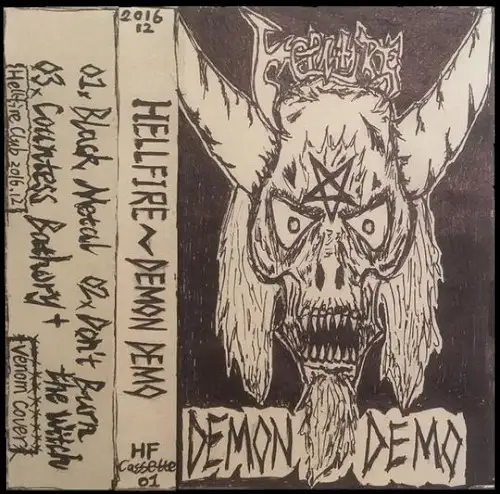 01. Black Metal 02. Don't Burn
the witch
03. Countess Bathory +
Hellfire Club 2016.12
Venom cover
2016
12
HELLFIRE ~ DEMON DEMO
HF
Cassette
01
HELLFIRE
DEMON DEMO